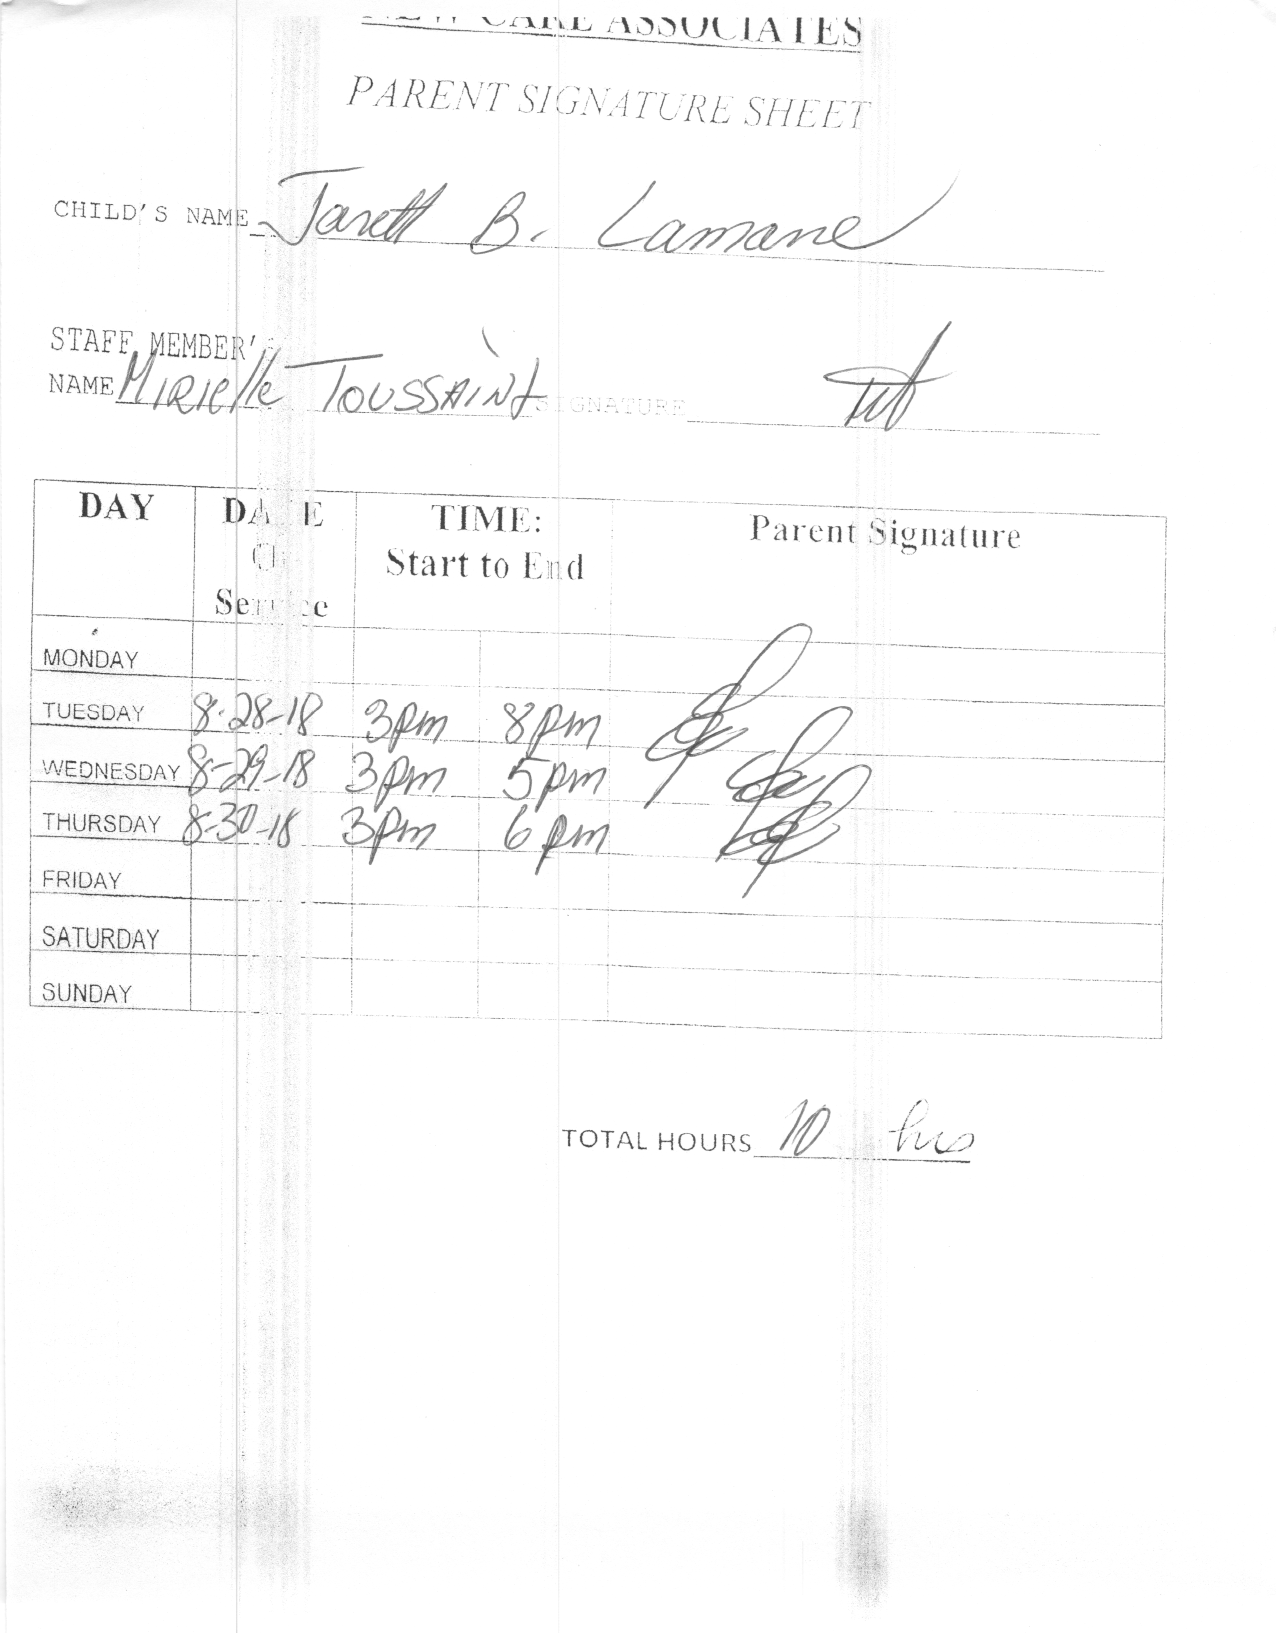 NEW CARE ASSOCIATES
PARENT SIGNATURE SHEET
CHILD'S NAME Jarett B. Lamane
STAFF MEMBER'S
NAME Mirielle Toussaint SIGNATURE
DAY DATE Of Service TIME: Start to End Parent Signature
MONDAY
TUESDAY 8-28-18 3pm 8pm
WEDNESDAY 8-29-18 3pm 5pm
THURSDAY 8-30-18 3pm 6pm
FRIDAY
SATURDAY
SUNDAY
TOTAL HOURS 10 hrs